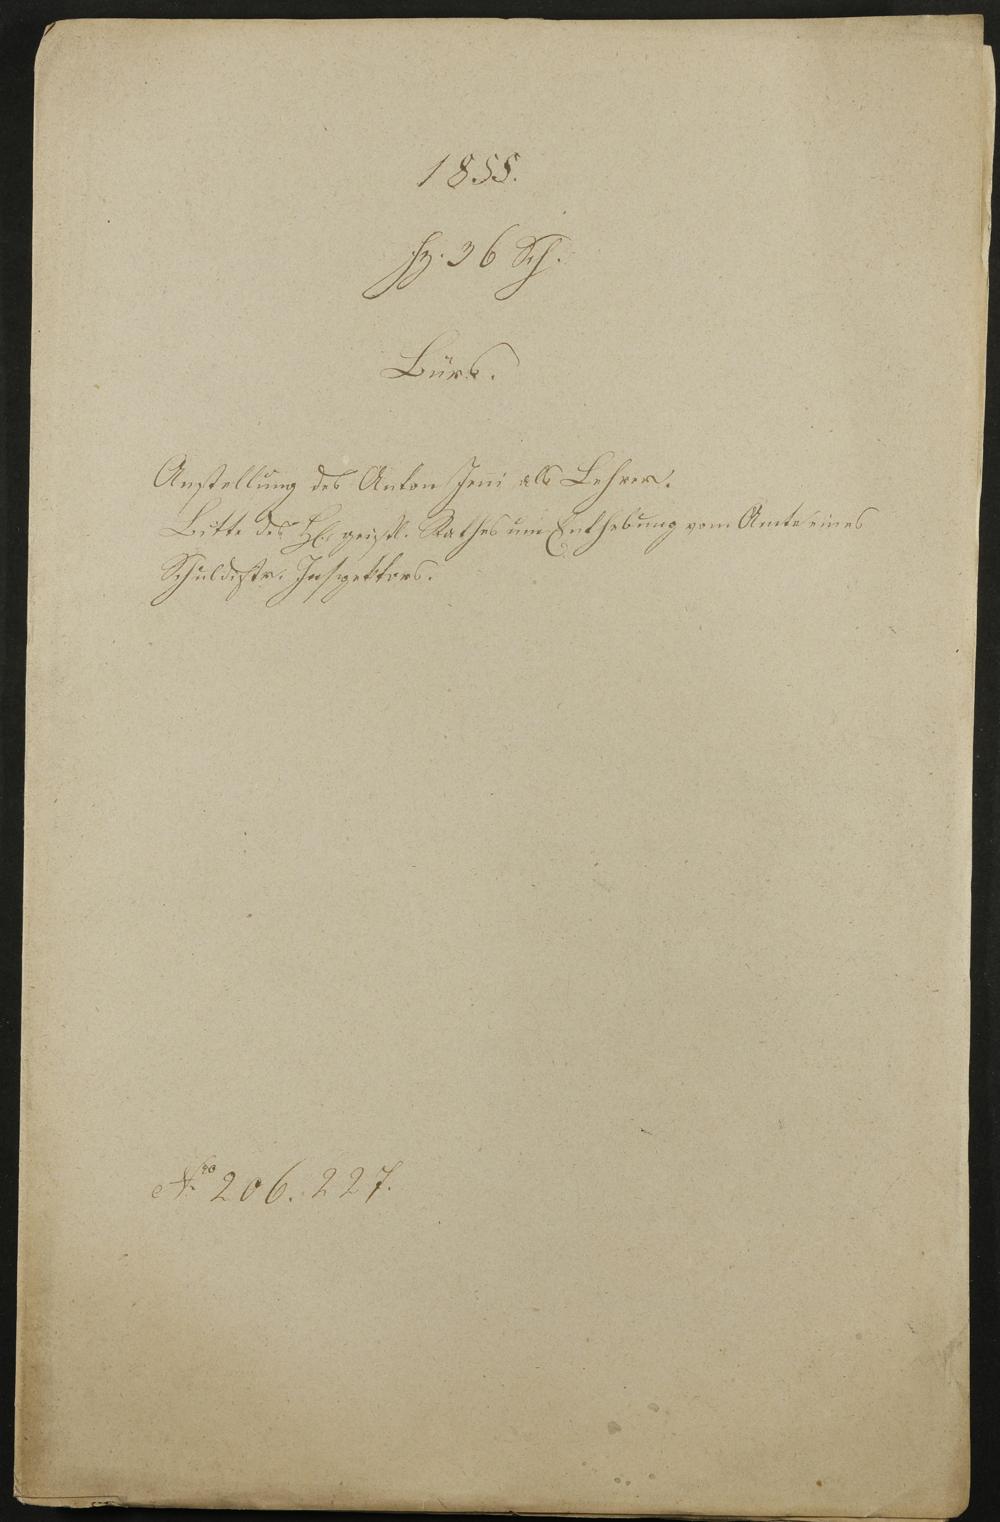 1855.
fz. 36 Sch.
Bürs.
Anstellung des Anton Jeni als Lehrer.
Bitte des geistl. Rathes um Enthebung vom Amte eines
Schuldistr. Inspektors.
Nro 206. 227.